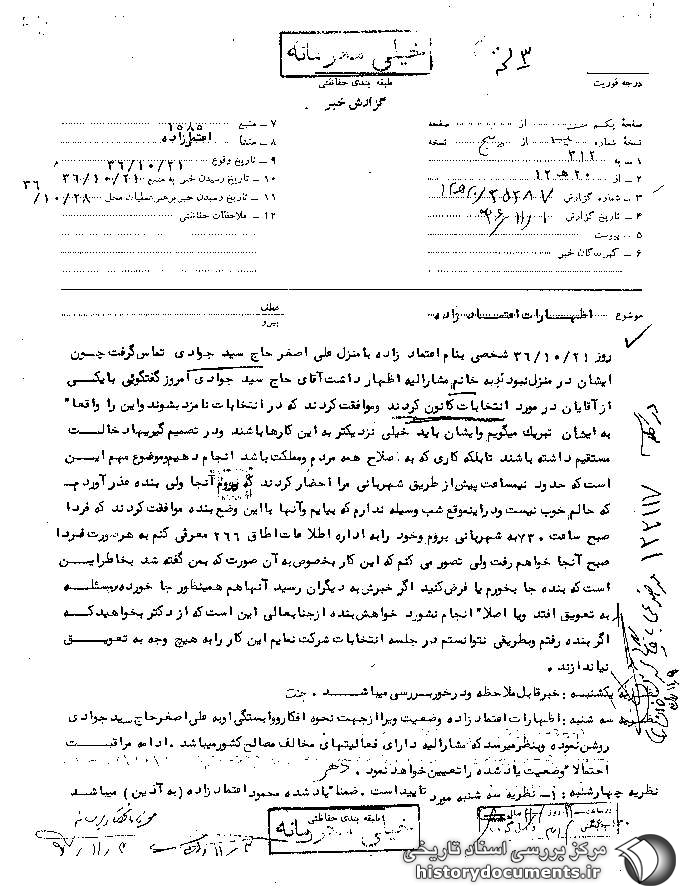 خیلی محرمانه
طبقه بندی حفاظتی
گزارش خبر
درجه فوریت
صفحه یکم از صفحه
نسخه شماره از پنج نسخه
۱ ـ به ۳۱۲
۲ ـ از ۲۰ هـ ۱۲
۳ ـ شماره گزارش
۴ ـ تاریخ گزارش ۳۶/۱۱/۱
۵ ـ پیوست
۶ ـ گیرندگان خبر
۷ ـ منبع ۱۵۸۵
۸ ـ منشأ اعتمادزاده
۹ ـ تاریخ وقوع ۳۶/۱۰/۲۱
۱۰ ـ تاریخ رسیدن خبر به منبع ۳۶/۱۰/۲۱
۱۱ ـ تاریخ رسیدن خبر برهبر عملیات محل ۳۶/۱۰/۲۸
۱۲ ـ ملاحظات حفاظتی
موضوع اظهارات اعتماد زاده
عطف
پیرو
روز ۳۶/۱۰/۲۱ شخصی بنام اعتماد زاده با منزل علی اصغر حاج سید جوادی تماس گرفت چون
ایشان در منزل نبود به خانم مشارالیه اظهار داشت آقای حاج سید جوادی امروز گفتگوئی با یکی
از آقایان در مورد انتخابات کانون کردند و موافقت کردند که در انتخابات نامزد بشوند و این را واقعا"
به ایشان تبریک میگویم و ایشان باید خیلی نزدیکتر به این کارها باشند و در تصمیم گیریها دخالت
مستقیم داشته باشند تا بلکه کاری که به اصلاح همه مردم و مملکت باشد انجام دهیم و موضوع مهم این
است که حدود نیمساعت پیش از طریق شهربانی مرا احضار کردند که بروم آنجا ولی بنده عذر آوردم
که حالم خوب نیست و در این موقع شب وسیله ندارم که بیایم و آنها با این وضع بنده موافقت کردند که فردا
صبح ساعت ۷۳۰ به شهربانی بروم و خود را به اداره اطلاعات اطاق ۲۶۶ معرفی کنم به هر صورت فردا
صبح آنجا خواهم رفت ولی تصور می کنم که این کار بخصوص به آن صورت که بمن گفته شد بخاطر این
است که بنده جا بخورم یا فرض کنید اگر خبرش به دیگران رسید آنها هم همینطور جا خورده و مسئله
به تعویق افتد و یا اصلا" انجام نشود خواهش بنده از جنابعالی این است که از دکتر بخواهید که
اگر بنده رفتم و بطریقی نتوانستم در جلسه انتخابات شرکت نمایم این کار را به هیچ وجه به تعویق
نیاندازند .
نظریه یکشنبه : خبر قابل ملاحظه و در خور بررسی میباشد .
نظریه سه شنبه : اظهارات اعتماد زاده وضعیت ویرا از جهت نحوه افکار و وابستگی او به علی اصغر حاج سید جوادی
روشن نموده و بنظر میرسد که مشارالیه دارای فعالیتهای مخالف مصالح کشور میباشد . ادامه مراقبت
احتمالا" وضعیت یاد شده را تعیین خواهد نمود .
نظریه چهارشنبه : ۱ـ نظریه سه شنبه مورد تایید است . ضمنا" یاد شده محمود اعتماد زاده (به آذین) میباشد
طبقه بندی حفاظتی
خیلی محرمانه
مرکز بررسی اسناد تاریخی
historydocuments.ir